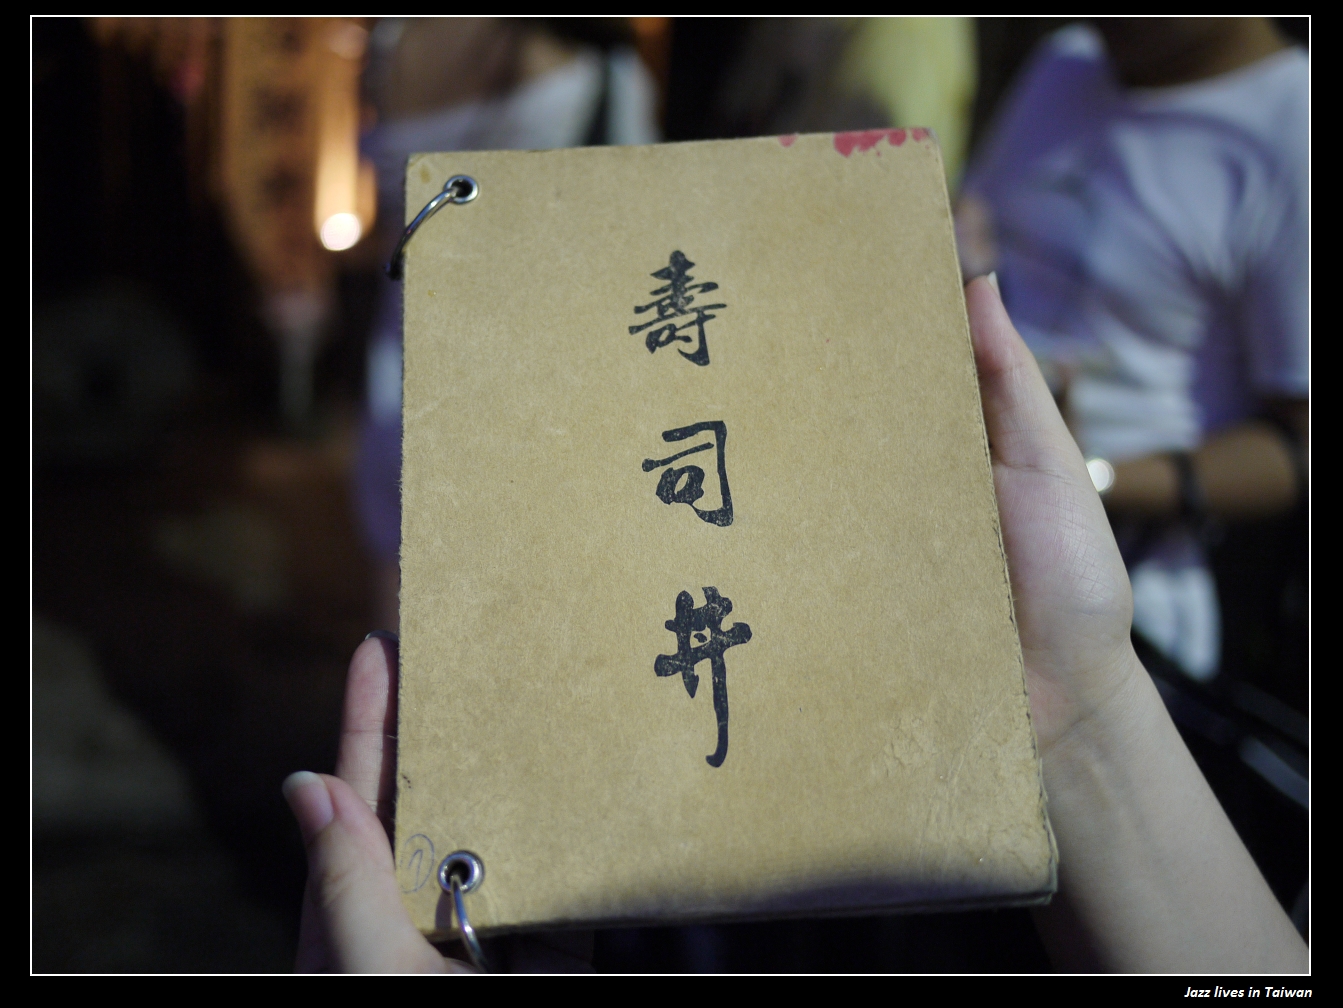 壽司丼
Jazz lives in Taiwan